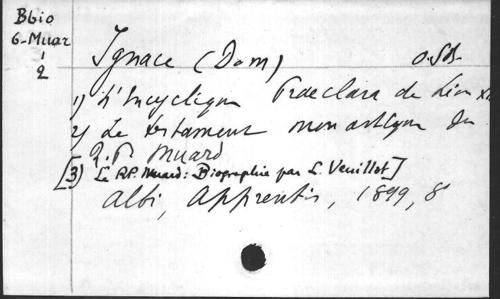 Bbio
6-Muar
1
2
Ignace (Dom) O.S.B.
1) L'Encyclique Praeclara de Léon XI
2) Le testament monastique du
R.P. Muard
[3) Le R.P. Muard: Biographie par L. Veuillot]
Albi, Apprentis, 1899, 8°